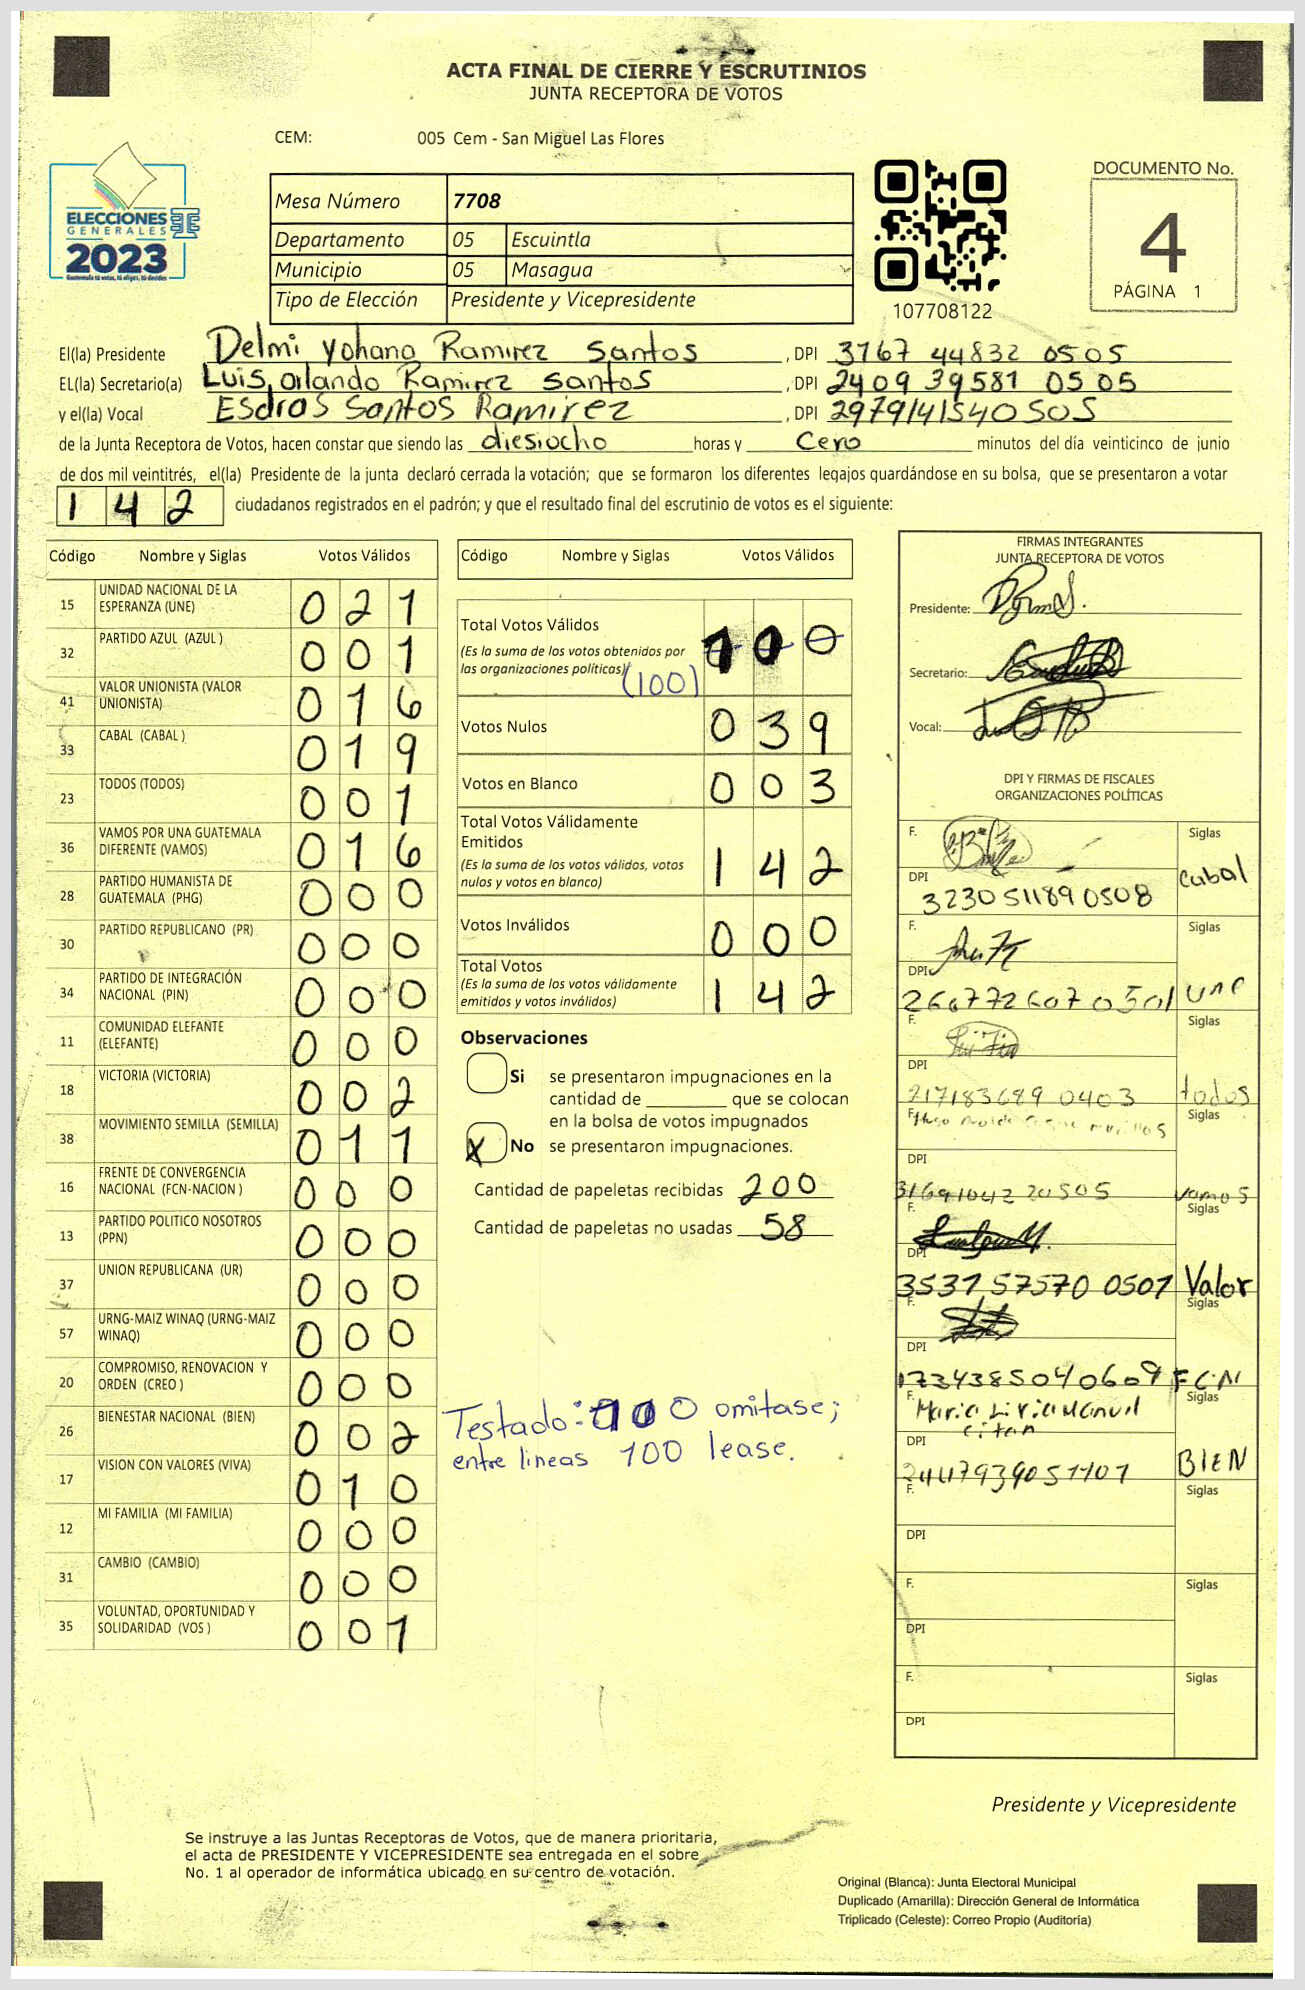 ACTA FINAL DE CIERRE Y ESCRUTINIOS
JUNTA RECEPTORA DE VOTOS
CEM: 005 Cem - San Miguel Las Flores
ELECCIONES
GENERALES
2023
Guatemala tú votas, tú eliges, tú decides
Mesa Número 7708
Departamento 05 Escuintla
Municipio 05 Masagua
Tipo de Elección Presidente y Vicepresidente
107708122
DOCUMENTO No.
4
PÁGINA 1
El(la) Presidente Delmi Yohana Ramirez Santos , DPI 3767 44832 0505
EL(la) Secretario(a) Luis Orlando Ramirez Santos , DPI 2409 39581 0505
y el(la) Vocal Esdras Santos Ramirez , DPI 2979141540505
de la Junta Receptora de Votos, hacen constar que siendo las diesiocho horas y Cero minutos del día veinticinco de junio
de dos mil veintitrés, el(la) Presidente de la junta declaró cerrada la votación; que se formaron los diferentes legajos guardándose en su bolsa, que se presentaron a votar
1 4 2 ciudadanos registrados en el padrón; y que el resultado final del escrutinio de votos es el siguiente:
Código Nombre y Siglas Votos Válidos
15 UNIDAD NACIONAL DE LA ESPERANZA (UNE) 0 2 1
32 PARTIDO AZUL (AZUL ) 0 0 1
41 VALOR UNIONISTA (VALOR UNIONISTA) 0 1 6
33 CABAL (CABAL ) 0 1 9
23 TODOS (TODOS) 0 0 1
36 VAMOS POR UNA GUATEMALA DIFERENTE (VAMOS) 0 1 6
28 PARTIDO HUMANISTA DE GUATEMALA (PHG) 0 0 0
30 PARTIDO REPUBLICANO (PR) 0 0 0
34 PARTIDO DE INTEGRACIÓN NACIONAL (PIN) 0 0 0
11 COMUNIDAD ELEFANTE (ELEFANTE) 0 0 0
18 VICTORIA (VICTORIA) 0 0 2
38 MOVIMIENTO SEMILLA (SEMILLA) 0 1 1
16 FRENTE DE CONVERGENCIA NACIONAL (FCN-NACION ) 0 0 0
13 PARTIDO POLITICO NOSOTROS (PPN) 0 0 0
37 UNION REPUBLICANA (UR) 0 0 0
57 URNG-MAIZ WINAQ (URNG-MAIZ WINAQ) 0 0 0
20 COMPROMISO, RENOVACION Y ORDEN (CREO ) 0 0 0
26 BIENESTAR NACIONAL (BIEN) 0 0 2
17 VISION CON VALORES (VIVA) 0 1 0
12 MI FAMILIA (MI FAMILIA) 0 0 0
31 CAMBIO (CAMBIO) 0 0 0
35 VOLUNTAD, OPORTUNIDAD Y SOLIDARIDAD (VOS ) 0 0 1
Código Nombre y Siglas Votos Válidos
Total Votos Válidos
(Es la suma de los votos obtenidos por
las organizaciones políticas)
(100)
Votos Nulos 0 3 9
Votos en Blanco 0 0 3
Total Votos Válidamente
Emitidos
(Es la suma de los votos válidos, votos
nulos y votos en blanco) 1 4 2
Votos Inválidos 0 0 0
Total Votos
(Es la suma de los votos válidamente
emitidos y votos inválidos) 1 4 2
Observaciones
Si se presentaron impugnaciones en la
cantidad de ________ que se colocan
en la bolsa de votos impugnados
X No se presentaron impugnaciones.
Cantidad de papeletas recibidas 200
Cantidad de papeletas no usadas 58
Testado: 110 omitase;
entre lineas 100 lease.
FIRMAS INTEGRANTES
JUNTA RECEPTORA DE VOTOS
Presidente:
Secretario:
Vocal:
DPI Y FIRMAS DE FISCALES
ORGANIZACIONES POLÍTICAS
F. Siglas
DPI Cabal
3230511890508
F. Siglas
DPI
2607726070501 une
F. Siglas
DPI
217183689 0403 todos
F. Siglas
DPI
3169104220505 vamos
F. Siglas
DPI
3537 57570 0507 Valor
F. Siglas
DPI
1734385040609 FCN
F. Siglas
Maria
DPI BIEN
F. Siglas
DPI
F. Siglas
DPI
F. Siglas
DPI
Presidente y Vicepresidente
Se instruye a las Juntas Receptoras de Votos, que de manera prioritaria,
el acta de PRESIDENTE Y VICEPRESIDENTE sea entregada en el sobre
No. 1 al operador de informática ubicado en su centro de votación.
Original (Blanca): Junta Electoral Municipal
Duplicado (Amarilla): Dirección General de Informática
Triplicado (Celeste): Correo Propio (Auditoría)